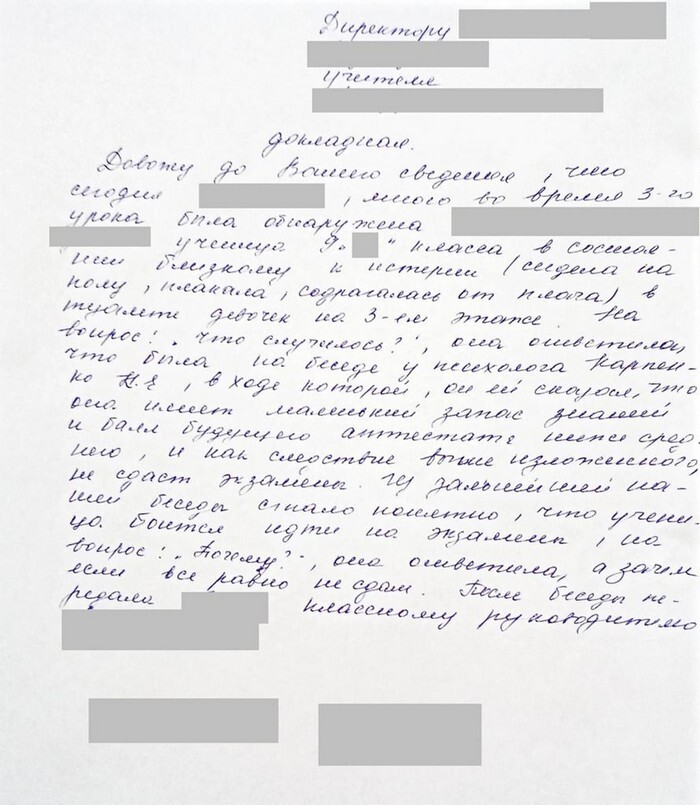 Директору
учителя
докладная.
Довожу до Вашего сведения, что
сегодня , мною во время 3-го
урока была обнаружена
ученица 9 " " класса в состоя-
нии близкому к истерии (сидела на
полу, плакала, содрагалась от плача) в
туалете девочек на 3-ем этаже. На
вопрос: „Что случилось?", она ответила,
что была на беседе у психолога Карпен-
ко Н.Е, в ходе которой, он ей сказал, что
она имеет маленький запас знаний
и балл будущего аттестата ниже сред-
него, и как следствие выше изложенного,
не сдаст экзамены. Из дальнейшей на-
шей беседы стало понятно, что учени-
ца боится идти на экзамены, на
вопрос: „Почему?", она ответила, а зачем
если все равно не сдам. После беседы пе-
редала классному руководителю